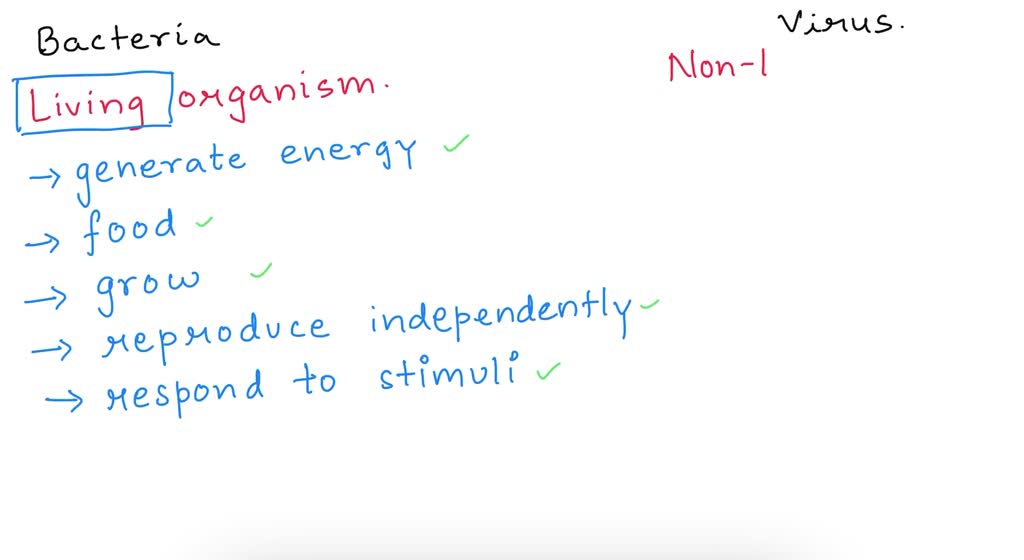 Bacteria
Virus.
Living organism.
Non-l
→ generate energy ✓
→ food ✓
→ grow ✓
→ reproduce independently ✓
→ respond to stimuli ✓